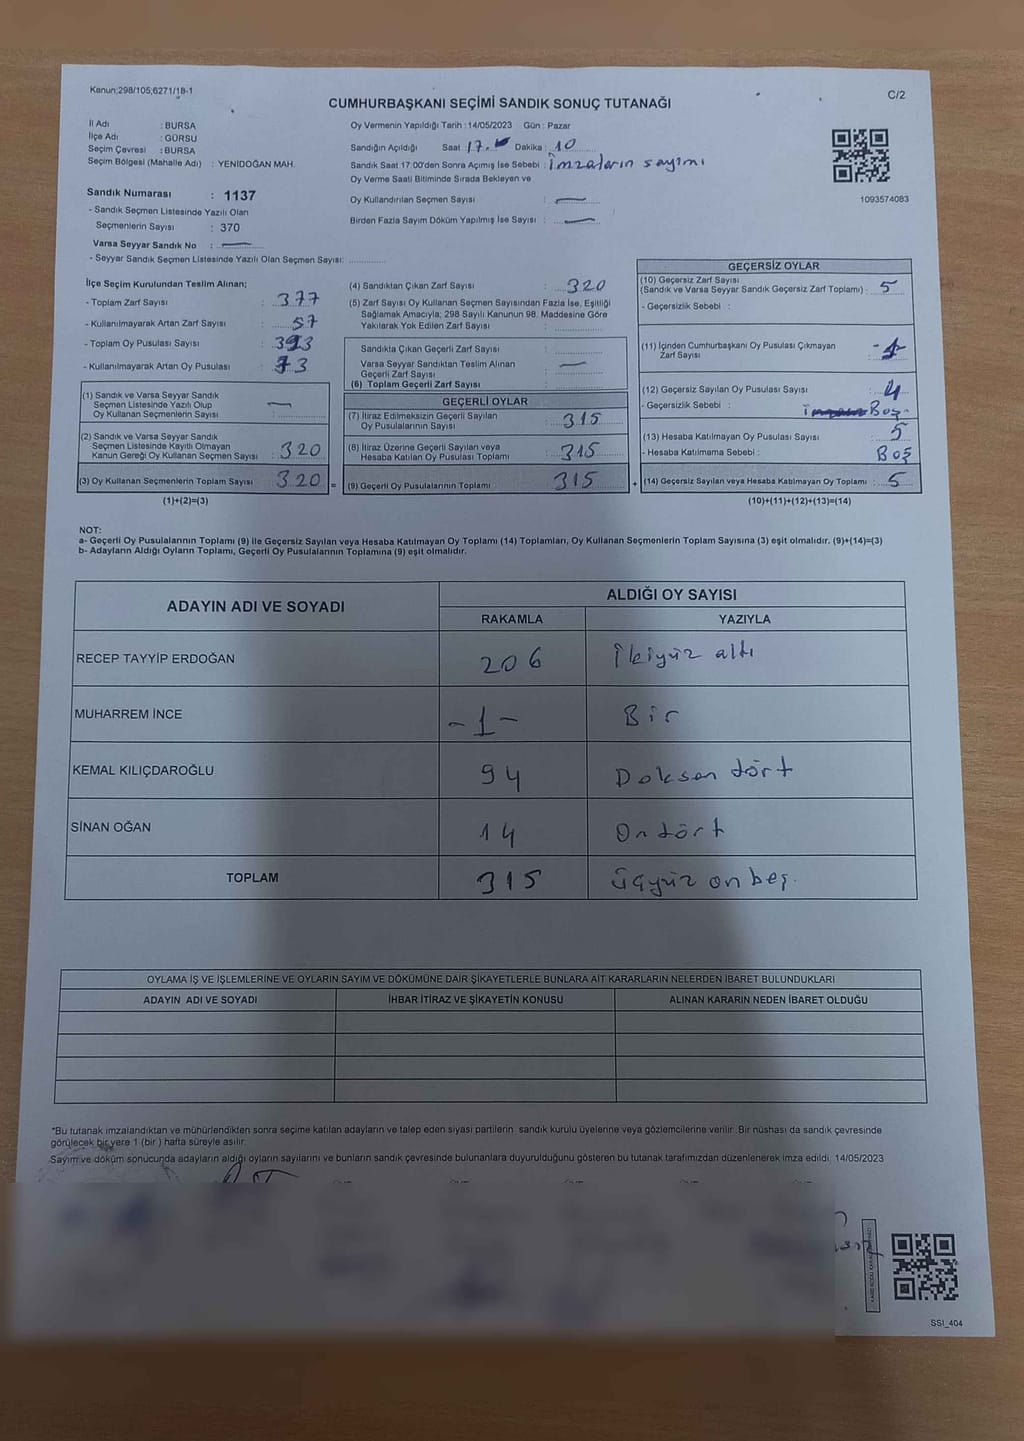 Kanun;298/105;6271/18-1
C/2
CUMHURBAŞKANI SEÇİMİ SANDIK SONUÇ TUTANAĞI
İl Adı : BURSA
İlçe Adı : GÜRSU
Seçim Çevresi : BURSA
Seçim Bölgesi (Mahalle Adı) : YENİDOĞAN MAH.
Sandık Numarası : 1137
- Sandık Seçmen Listesinde Yazılı Olan
Seçmenlerin Sayısı : 370
Varsa Seyyar Sandık No : —
- Seyyar Sandık Seçmen Listesinde Yazılı Olan Seçmen Sayısı:
Oy Vermenin Yapıldığı Tarih : 14/05/2023 Gün : Pazar
Sandığın Açıldığı Saat 17. Dakika : 10
Sandık Saat 17.00'den Sonra Açımış İse Sebebi : İmzaların sayımı
Oy Verme Saati Bitiminde Sırada Bekleyen ve
Oy Kullandırılan Seçmen Sayısı : —
Birden Fazla Sayım Döküm Yapılmış İse Sayısı : —
1093574083
İlçe Seçim Kurulundan Teslim Alınan;
- Toplam Zarf Sayısı : 377
- Kullanılmayarak Artan Zarf Sayısı : 57
- Toplam Oy Pusulası Sayısı : 393
- Kullanılmayarak Artan Oy Pusulası : 73
(1) Sandık ve Varsa Seyyar Sandık
Seçmen Listesinde Yazılı Olup
Oy Kullanan Seçmenlerin Sayısı : —
(2) Sandık ve Varsa Seyyar Sandık
Seçmen Listesinde Kayıtlı Olmayan
Kanun Gereği Oy Kullanan Seçmen Sayısı : 320
(3) Oy Kullanan Seçmenlerin Toplam Sayısı : 320 =
(1)+(2)=(3)
(4) Sandıktan Çıkan Zarf Sayısı : 320
(5) Zarf Sayısı Oy Kullanan Seçmen Sayısından Fazla İse, Eşitliği
Sağlamak Amacıyla; 298 Sayılı Kanunun 98. Maddesine Göre
Yakılarak Yok Edilen Zarf Sayısı :
Sandıkta Çıkan Geçerli Zarf Sayısı :
Varsa Seyyar Sandıktan Teslim Alınan
Geçerli Zarf Sayısı : —
(6) Toplam Geçerli Zarf Sayısı :
GEÇERLİ OYLAR
(7) İtiraz Edilmeksizin Geçerli Sayılan
Oy Pusulalarının Sayısı : 315
(8) İtiraz Üzerine Geçerli Sayılan veya
Hesaba Katılan Oy Pusulası Toplamı : 315
(9) Geçerli Oy Pusulalarının Toplamı : 315 +
GEÇERSİZ OYLAR
(10) Geçersiz Zarf Sayısı
(Sandık ve Varsa Seyyar Sandık Geçersiz Zarf Toplamı) : 5
- Geçersizlik Sebebi :
(11) İçinden Cumhurbaşkanı Oy Pusulası Çıkmayan
Zarf Sayısı : -1
(12) Geçersiz Sayılan Oy Pusulası Sayısı : 4
- Geçersizlik Sebebi : Boş.
(13) Hesaba Katılmayan Oy Pusulası Sayısı : 5
- Hesaba Katılmama Sebebi : Boş
(14) Geçersiz Sayılan veya Hesaba Katılmayan Oy Toplamı : 5
(10)+(11)+(12)+(13)=(14)
NOT:
a- Geçerli Oy Pusulalarının Toplamı (9) ile Geçersiz Sayılan veya Hesaba Katılmayan Oy Toplamı (14) Toplamları, Oy Kullanan Seçmenlerin Toplam Sayısına (3) eşit olmalıdır. (9)+(14)=(3)
b- Adayların Aldığı Oyların Toplamı, Geçerli Oy Pusulalarının Toplamına (9) eşit olmalıdır.
ADAYIN ADI VE SOYADI
ALDIĞI OY SAYISI
RAKAMLA YAZIYLA
RECEP TAYYİP ERDOĞAN 206 İkiyüz altı
MUHARREM İNCE -1- Bir
KEMAL KILIÇDAROĞLU 94 Doksan dört
SİNAN OĞAN 14 On dört
TOPLAM 315 üçyüz on beş.
OYLAMA İŞ VE İŞLEMLERİNE VE OYLARIN SAYIM VE DÖKÜMÜNE DAİR ŞİKAYETLERLE BUNLARA AİT KARARLARIN NELERDEN İBARET BULUNDUKLARI
ADAYIN ADI VE SOYADI İHBAR İTİRAZ VE ŞİKAYETİN KONUSU ALINAN KARARIN NEDEN İBARET OLDUĞU
*Bu tutanak imzalandıktan ve mühürlendikten sonra seçime katılan adayların ve talep eden siyasi partilerin sandık kurulu üyelerine veya gözlemcilerine verilir. Bir nüshası da sandık çevresinde
görülecek bir yere 1 (bir) hafta süreyle asılır.
Sayım ve döküm sonucunda adayların aldığı oyların sayılarını ve bunların sandık çevresinde bulunanlara duyurulduğunu gösteren bu tutanak tarafımızdan düzenlenerek imza edildi. 14/05/2023
SSI_404